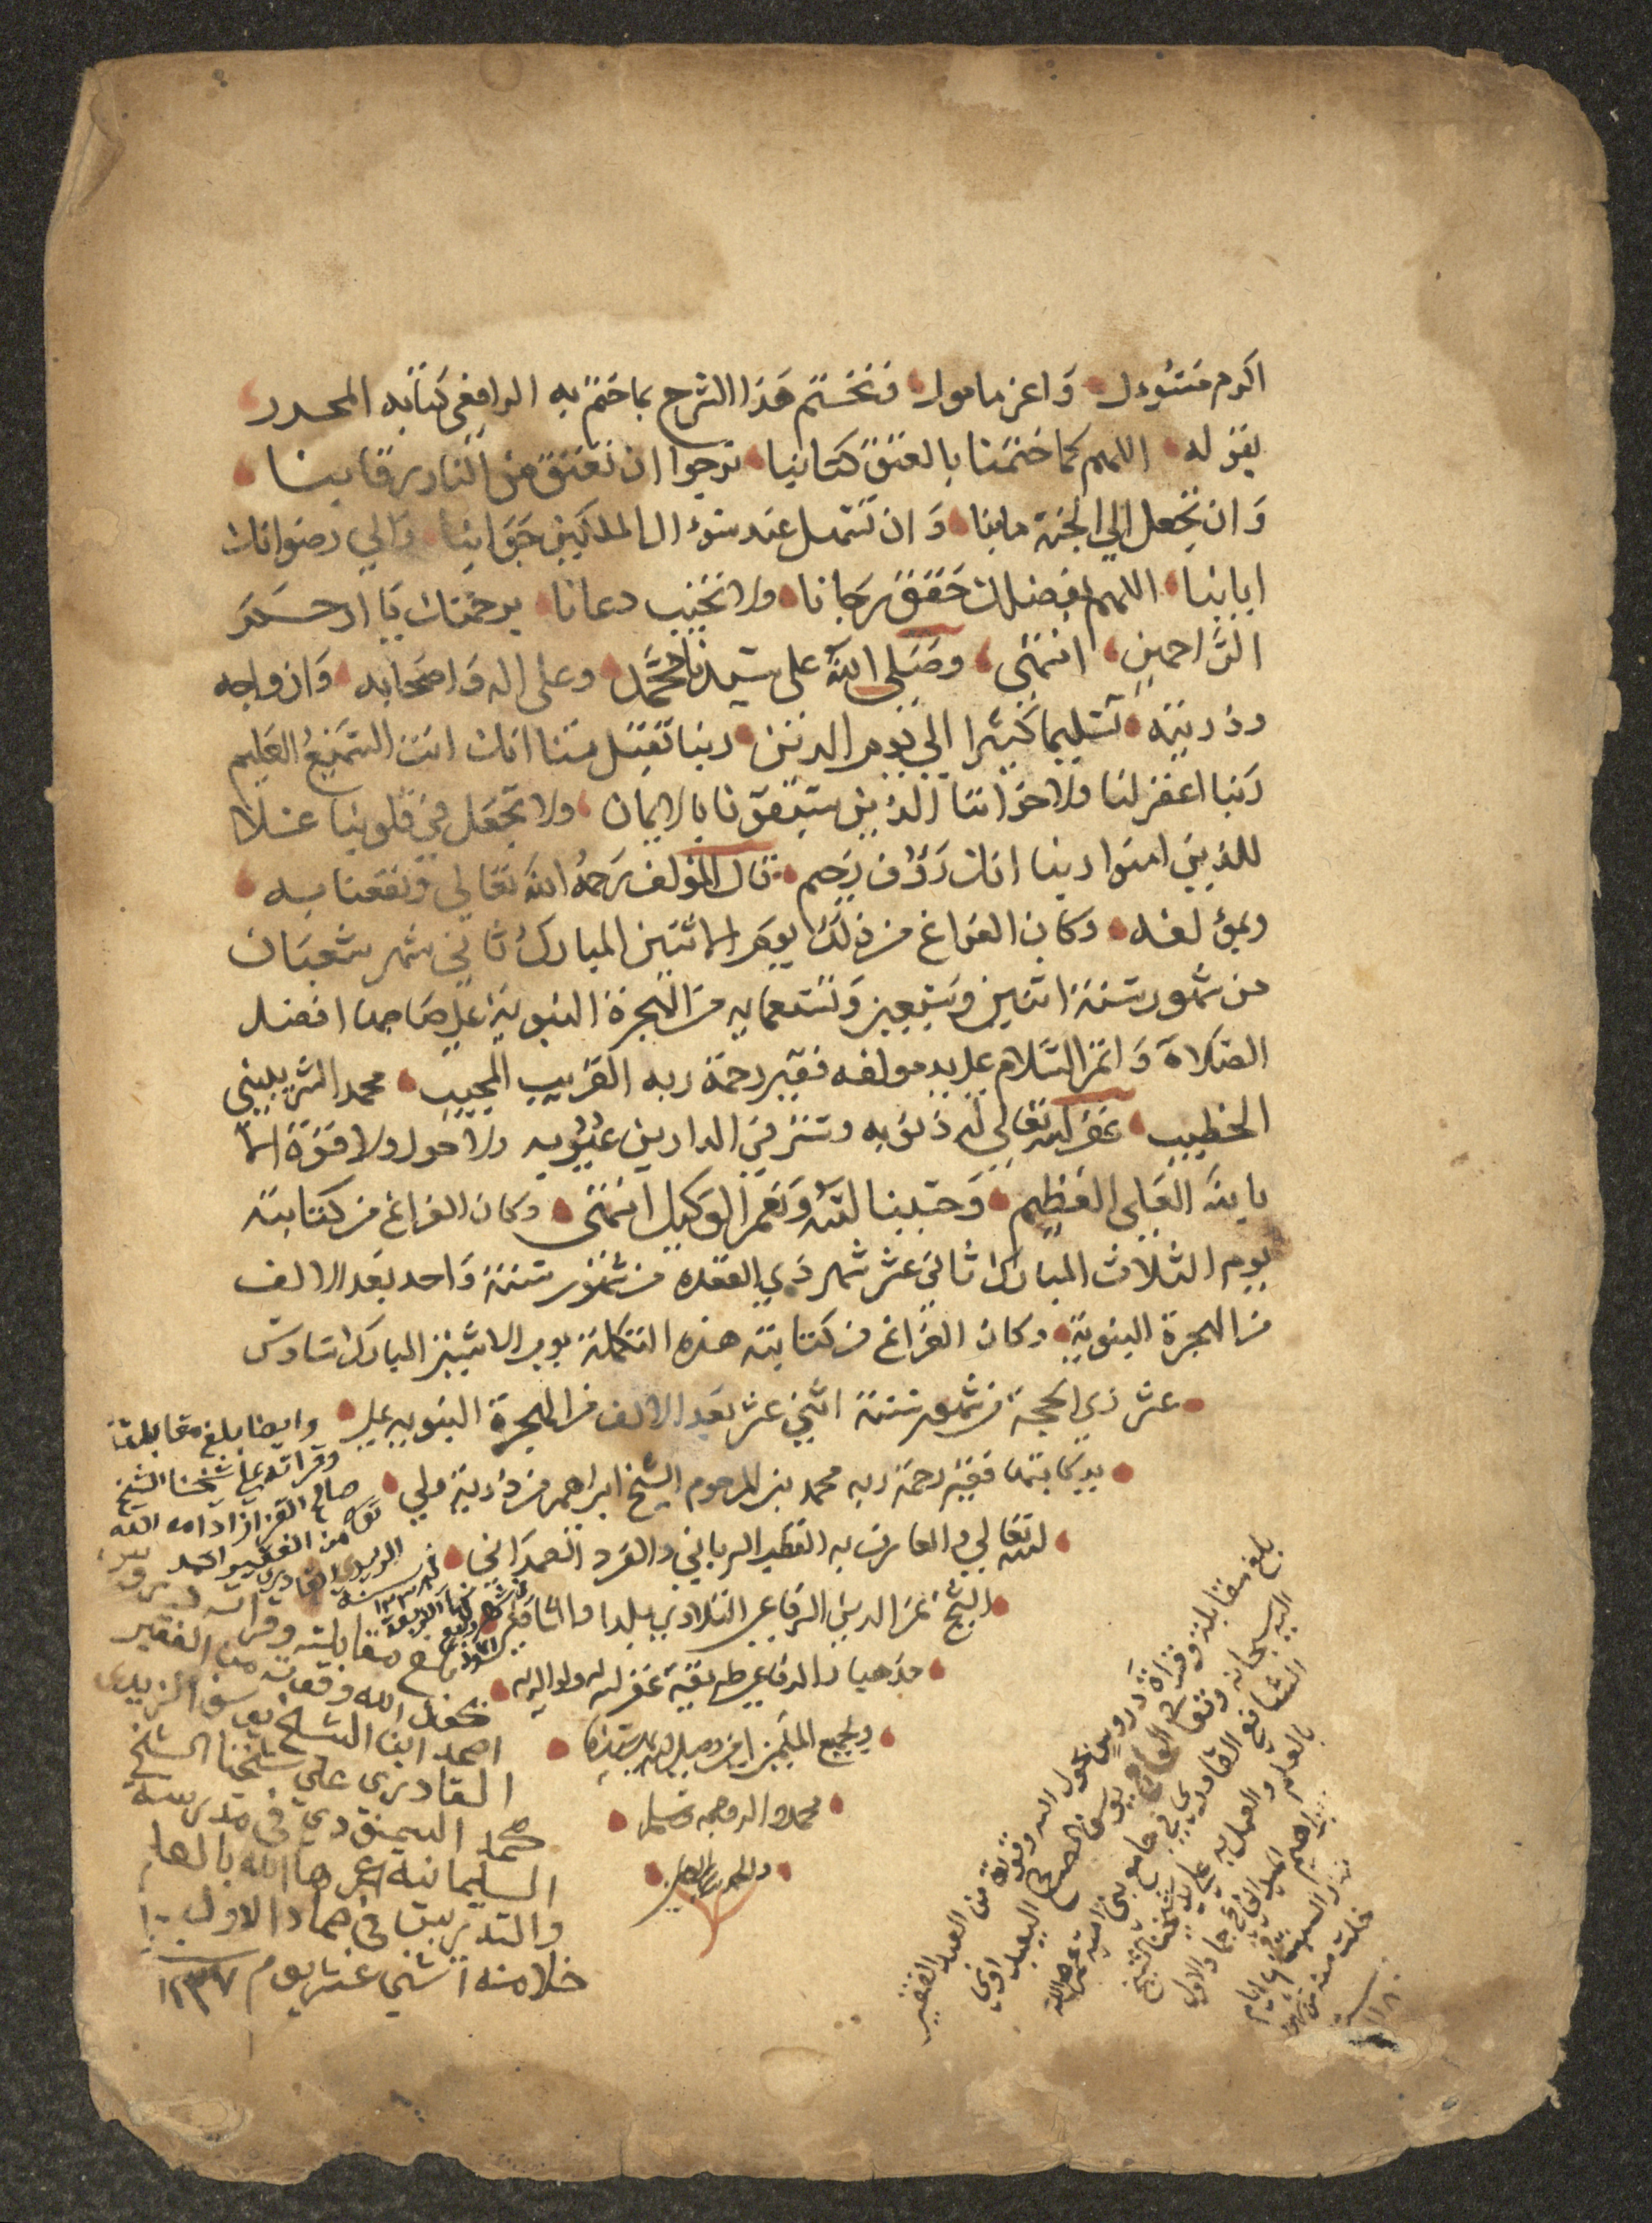 اكرم مسئول واعز مامول فنختم هذا الشرح بما ختم به الرافعي كتابه المحرر
بقوله اللهم كما ختمنا بالعتق كتابنا نرجوا ان تعتق من النار رقابنا
وان تجعل الي الجنة مابنا وان تسهل عند سؤال الملكين جوابنا والي رضوانك
ايابنا اللهم بفضلك حقق رجانا ولا تخيب دعانا برحمتك يا ارحم
الراحمين انتهى وصلى الله على سيدنا محمد وعلى اله واصحابه وازواجه
وذريته تسليما كثيرا الي يوم الدين ربنا تقبل منا انك انت السميع العليم
ربنا اغفر لنا ولاخواننا الذين سبقونا بالايمان ولا تجعل في قلوبنا غلا
للذين امنوا ربنا انك رؤف رحيم قال المؤلف رحمه الله تعالي ونفعنا به
وبمؤلفه وكان الفراغ من ذلك يوم الاثنين المبارك ثاني شهر شعبان
من شهور سنة اثنين وسبعين وتسعمايه من الهجرة النبوية على صاحبها افضل
الصلاة واتم السلام على يد مولفه فقير رحمة ربه القريب المجيب محمد الشربيني
الخطيب غفر الله تعالى له ذنوبه وستر في الدارين عيوبه ولا حول ولا قوة الا
بالله العلي العظيم وحسبنا الله ونعم الوكيل انتهى وكان الفراغ من كتابته
يوم الثلاث المبارك ثاني عشر شهر ذي القعده من شهور سنة واحد بعد الالف
من الهجرة النبوية وكان الفراغ من كتابته هذه التكملة يوم الاثنين المبارك سادس
عشر ذي الحجة من شهور سنة اثني عشر بعد الالف من الهجرة النبويه على
يد كاتبها فقير رحمة ربه محمد بن المرحوم الشيخ ابراهيم من ذرية ولي
الله تعالي والعارف به القطب الرباني والفرد الصمداني
الشيخ عز الدين الرفاعي التلاوي بلدا والشافعي
مذهبا والرفاعي طريقة غفر له ولوالديه
ولجميع المسلمين امين وصلى الله على سيدنا
محمد واله وصحبه وسلم
والحمد لله رب العالمين
وايضا بلغ مقابلة
وقراته على شيخنا الشيخ
صالح القزاز ادامه الله
من الفقير احمد
الزبيدي القادري
بلغ مقابلته وقراته
بحول الله وقوته من الفقير
احمد ابن الشيخ يوسف الزبيدى
القادرى علي شيخنا الشيخ
محمد السمنودي في مدرسة
السليمانية عمرها الله بالعلم
والتدريس في جماد الاول
خلا منه اثني عشر يوم ١٢٣٧
بلغ مقابلة وقراة دروس بحول الله وقوته من العبد الفقير
اليه سبحانه وتعالى يوسف
الشافعي القادري في جامع بني امية عمره الله
بالعلم والعمل به على يد شيخنا الشيخ
ابراهيم في جماد الاول
خلت منه